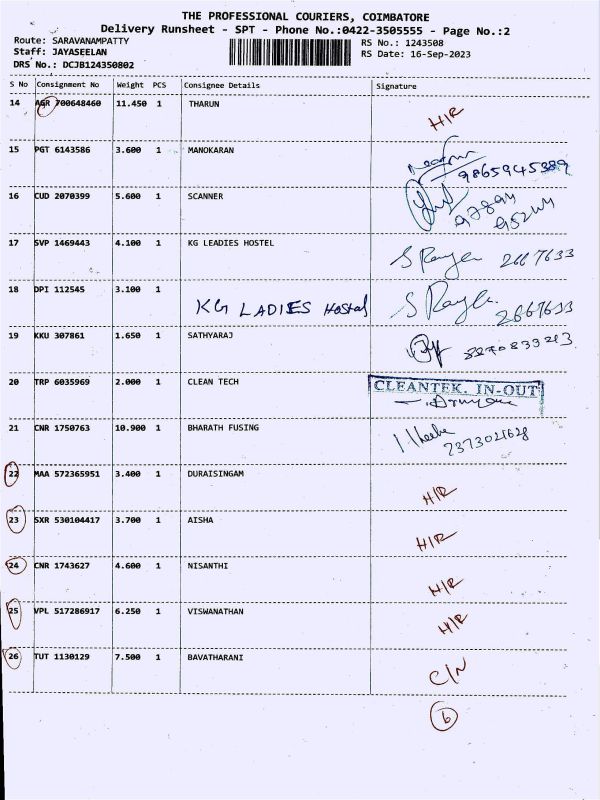 THE PROFESSIONAL COURIERS, COIMBATORE
Delivery Runsheet - SPT - Phone No.:0422-3505555 - Page No.:2
Route: SARAVANAMPATTY RS No.: 1243508
Staff: JAYASEELAN RS Date: 16-Sep-2023
DRS No.: DCJB124350802
S No Consignment No Weight PCS Consignee Details Signature
14 AGR 700648460 11.450 1 THARUN H/R
15 PGT 6143586 3.600 1 MANOKARAN 9865945389
16 CUD 2070399 5.600 1 SCANNER
17 SVP 1469443 4.100 1 KG LEADIES HOSTEL 2667633
18 DPI 112545 3.100 1 KG LADIES Hostal 2667633
19 KKU 307861 1.650 1 SATHYARAJ
20 TRP 6035969 2.000 1 CLEAN TECH CLEANTEK. IN-OUT
21 CNR 1750763 10.900 1 BHARATH FUSING
22 MAA 572365951 3.400 1 DURAISINGAM H/R
23 SXR 530104417 3.700 1 AISHA H/R
24 CNR 1743627 4.600 1 NISANTHI H/R
25 VPL 517286917 6.250 1 VISWANATHAN H/R
26 TUT 1130129 7.500 1 BAVATHARANI C/N
6